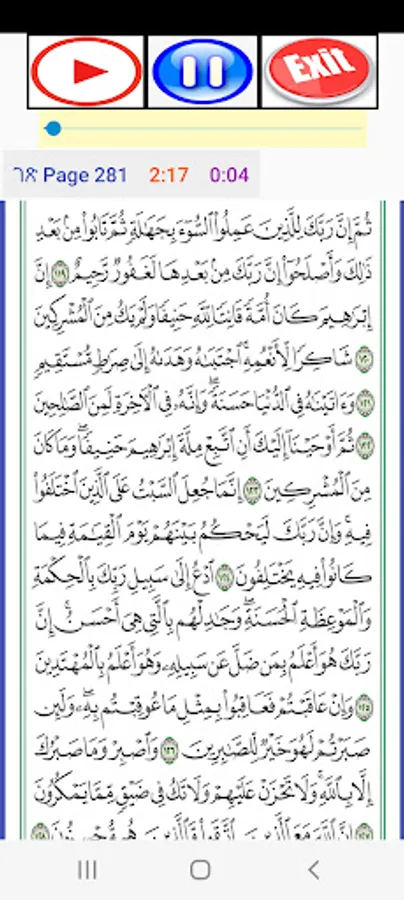 Exit
ገጽ Page 281 2:17 0:04
ثُمَّ إِنَّ رَبَّكَ لِلَّذِينَ عَمِلُوا۟ ٱلسُّوٓءَ بِجَهَٰلَةٍ ثُمَّ تَابُوا۟ مِنۢ بَعْدِ
ذَٰلِكَ وَأَصْلَحُوٓا۟ إِنَّ رَبَّكَ مِنۢ بَعْدِهَا لَغَفُورٌ رَّحِيمٌ ١١٩ إِنَّ
إِبْرَٰهِيمَ كَانَ أُمَّةً قَانِتًا لِّلَّهِ حَنِيفًا وَلَمْ يَكُ مِنَ ٱلْمُشْرِكِينَ
١٢٠ شَاكِرًا لِّأَنْعُمِهِ ۚ ٱجْتَبَىٰهُ وَهَدَىٰهُ إِلَىٰ صِرَٰطٍ مُّسْتَقِيمٍ
١٢١ وَءَاتَيْنَٰهُ فِى ٱلدُّنْيَا حَسَنَةً ۖ وَإِنَّهُۥ فِى ٱلْءَاخِرَةِ لَمِنَ ٱلصَّٰلِحِينَ
١٢٢ ثُمَّ أَوْحَيْنَآ إِلَيْكَ أَنِ ٱتَّبِعْ مِلَّةَ إِبْرَٰهِيمَ حَنِيفًا ۖ وَمَا كَانَ
مِنَ ٱلْمُشْرِكِينَ ١٢٣ إِنَّمَا جُعِلَ ٱلسَّبْتُ عَلَى ٱلَّذِينَ ٱخْتَلَفُوا۟
فِيهِ ۚ وَإِنَّ رَبَّكَ لَيَحْكُمُ بَيْنَهُمْ يَوْمَ ٱلْقِيَٰمَةِ فِيمَا
كَانُوا۟ فِيهِ يَخْتَلِفُونَ ١٢٤ ٱدْعُ إِلَىٰ سَبِيلِ رَبِّكَ بِٱلْحِكْمَةِ
وَٱلْمَوْعِظَةِ ٱلْحَسَنَةِ ۖ وَجَٰدِلْهُم بِٱلَّتِى هِىَ أَحْسَنُ ۚ إِنَّ
رَبَّكَ هُوَ أَعْلَمُ بِمَن ضَلَّ عَن سَبِيلِهِۦ ۖ وَهُوَ أَعْلَمُ بِٱلْمُهْتَدِينَ
١٢٥ وَإِنْ عَاقَبْتُمْ فَعَاقِبُوا۟ بِمِثْلِ مَا عُوقِبْتُم بِهِۦ ۖ وَلَئِن
صَبَرْتُمْ لَهُوَ خَيْرٌ لِّلصَّٰبِرِينَ ١٢٦ وَٱصْبِرْ وَمَا صَبْرُكَ
إِلَّا بِٱللَّهِ ۚ وَلَا تَحْزَنْ عَلَيْهِمْ وَلَا تَكُ فِى ضَيْقٍ مِّمَّا يَمْكُرُونَ
١٢٧ إِنَّ ٱللَّهَ مَعَ ٱلَّذِينَ ٱتَّقَوا۟ وَّٱلَّذِينَ هُم مُّحْسِنُونَ ١٢٨